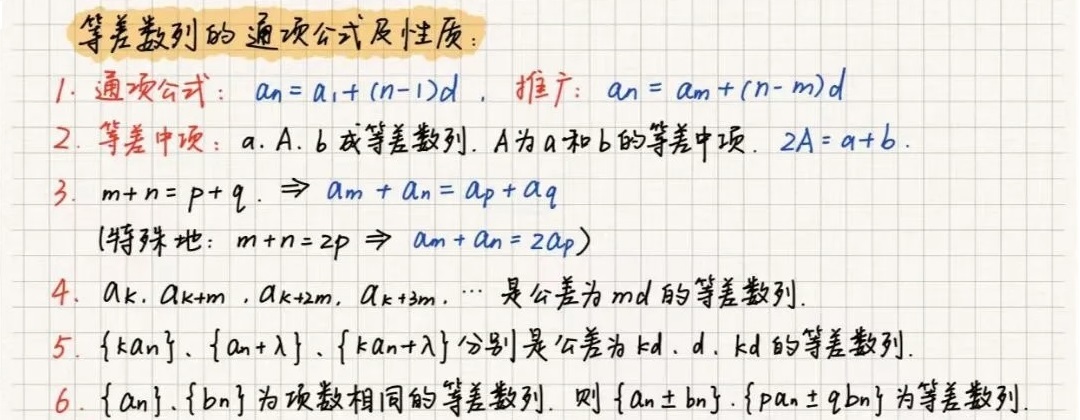 等差数列的通项公式及性质：
1. 通项公式： an = a1 + (n-1)d . 推广： an = am + (n-m)d
2. 等差中项： a. A. b 成等差数列. A为a和b的等差中项. 2A = a+b.
3. m+n = p+q. ⇒ am + an = ap + aq
(特殊地： m+n=2p ⇒ am + an = 2ap)
4. ak. ak+m . ak+2m. ak+3m. … 是公差为 md 的等差数列.
5. {kan}、{an+λ}、{kan+λ}分别是公差为 kd、d、kd 的等差数列.
6. {an}、{bn}为项数相同的等差数列. 则{an±bn}.{pan±qbn}为等差数列.